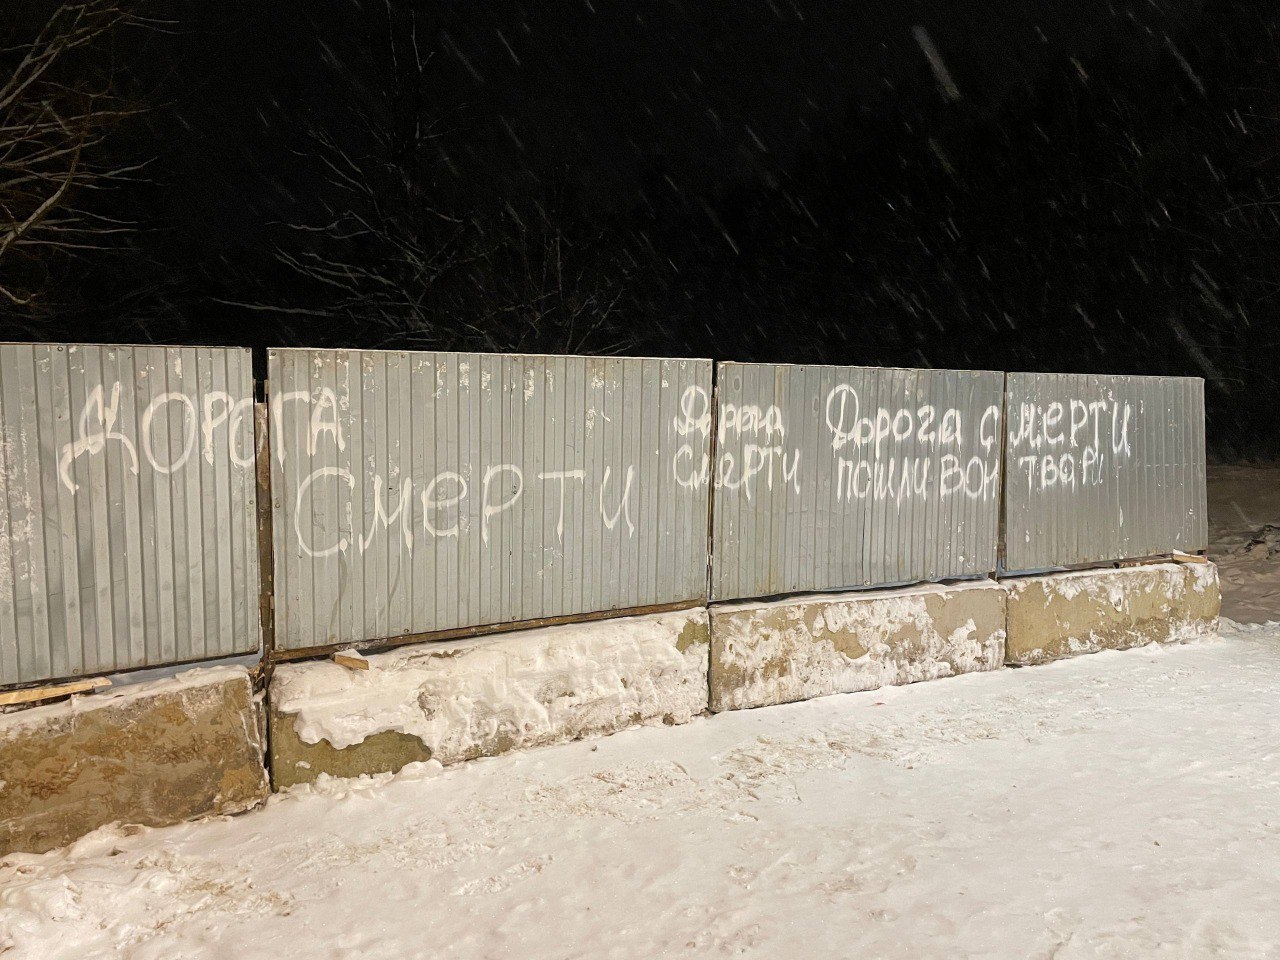 ДОРОГА
СМЕРТИ
Дорога
смерти
Дорога смерти
пошли вон твари